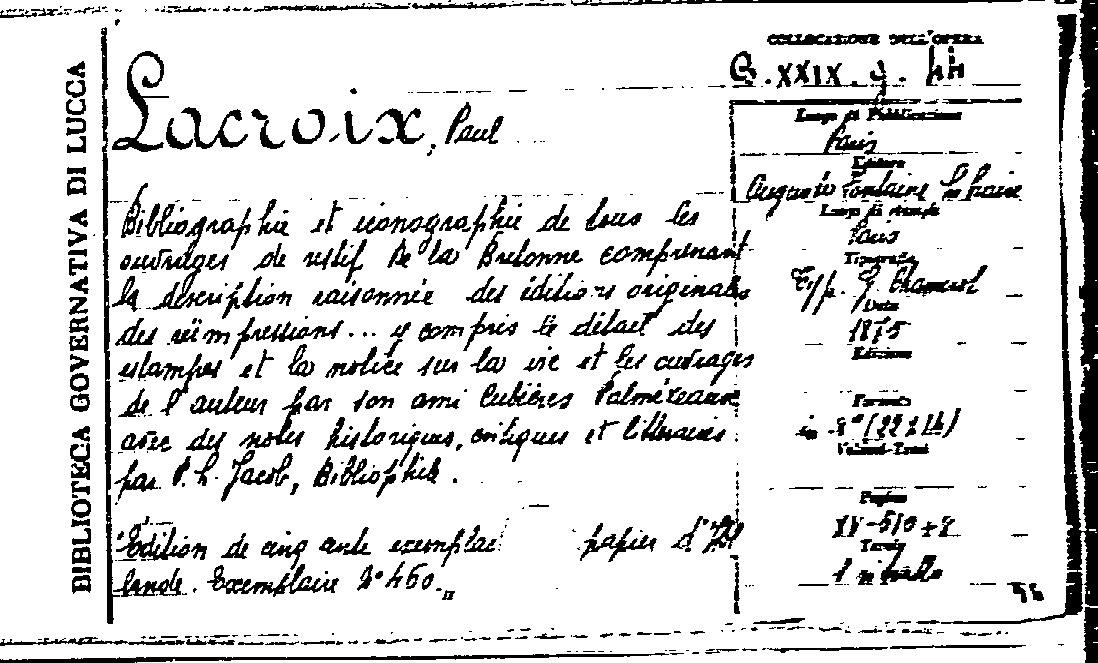 BIBLIOTECA GOVERNATIVA DI LUCCA
COLLOCAZIONE DELL'OPERA
B. XXIX. g.
Lacroix, Paul
Bibliographie et iconographie de tous les
ouvrages de restif de la Bretonne comprenant
la description raisonnée des éditions originales
des réimpressions... y compris le détail des
estampes et la notice sur la vie et les ouvrages
de l'auteur par son ami Cubières Palmézeaux
avec des notes historiques, critiques et littéraires
par P. L. Jacob, Bibliophile.
"Edition de cinq cente exemplai papier d'Hol
lande. Exemplaire N° 460."
Luogo di Pubblicazione
Paris
Editore
Auguste Fontaine Libraire
Luogo di stampa
Paris
Tipografia
Typ. G. Chamerot
Data
1875
Edizione
Formato
in 8° (22 x 14)
Volumi-Tomi
Pagine
XV-510+2
Tavole
1 ritratto